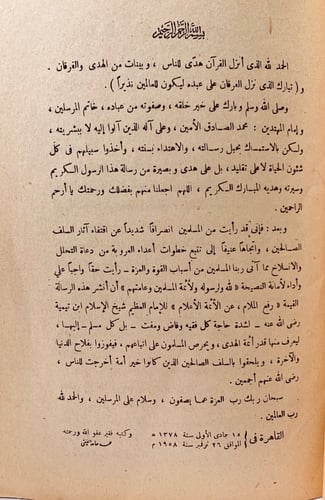 بسم الله الرحمن الرحيم
الحمد لله الذى أنزل القرآن هدًى للناس ، وبينات من الهدى والفرقان .
و ( تبارك الذى نزل الفرقان على عبده ليكون للعالمين نذيراً ) .
وصلى الله وسلم وبارك على خير خلقه ، وصفوته من عباده ، خاتم المرسلين ،
وإمام المهتدين : محمد الصادق الأمين ، وعلى آله الذين آلوا إليه لا ببشريته ،
ولكن بالاستمساك بحبل رسالته ، والاهتداء بسنته ، وأخذوا سبيلهم فى كل
شئون الحياة لا على تقليد ، بل على هدى وبصيرة من رسالة هذا الرسول الكريم
وسيرته وهديه المبارك الكريم ، اللهم اجعلنا منهم بفضلك ورحمتك يا أرحم
الراحمين .
وبعد : فإنى قد رأيت من المسلمين انصرافاً شديداً عن اقتفاء آثار السلف
الصالحين ، واتجاهاً عنيفاً إلى تتبع خطوات أعداء العروبة من دعاة التحلل
والانسلاخ مما آتى ربنا المسلمين من أسباب القوة والعزة – رأيت حقا واجباً علي
وأداء لأمانة النصيحة « لله ولرسوله ولأئمة المسلمين وعامتهم » أن أنشر هذه الرسالة
القيمة « رفع الملام ، عن الأئمة الأعلام » للإمام العظيم شيخ الإسلام ابن تيمية
رضى الله عنه – لشدة حاجة كل فقيه وقاض ومفت – بل كل مسلم – إليها ،
ليعرف منها قدر أئمة الهدى ، ويحرص المسلمون على اتباعهم ، فيفوزوا بفلاح الدنيا
والآخرة ، ويلحقوا بالسلف الصالحين الذين كانوا خير أمة أخرجت للناس ،
رضى الله عنهم أجمعين .
سبحان ربك رب العزة عما يصفون ، وسلام على المرسلين ، والحمد لله
رب العالمين .
القاهرة فى
١٥ جمادى الأولى سنة ١٣٧٨ هـ
الموافق ٢٦ نوفمبر سنة ١٩٥٨ م
وكتبه فقير عفو الله ورحمته
محمد حامد الفقى